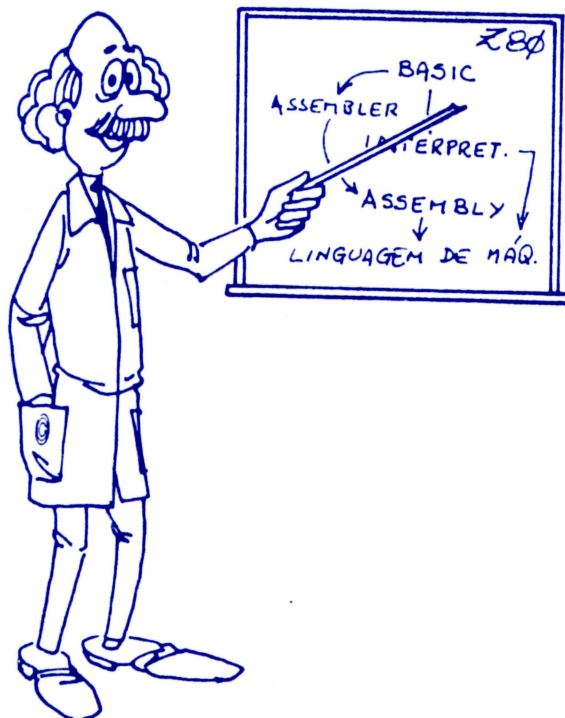 Z80
BASIC
ASSEMBLER
INTERPRET.
ASSEMBLY
LINGUAGEM DE MÁQ.